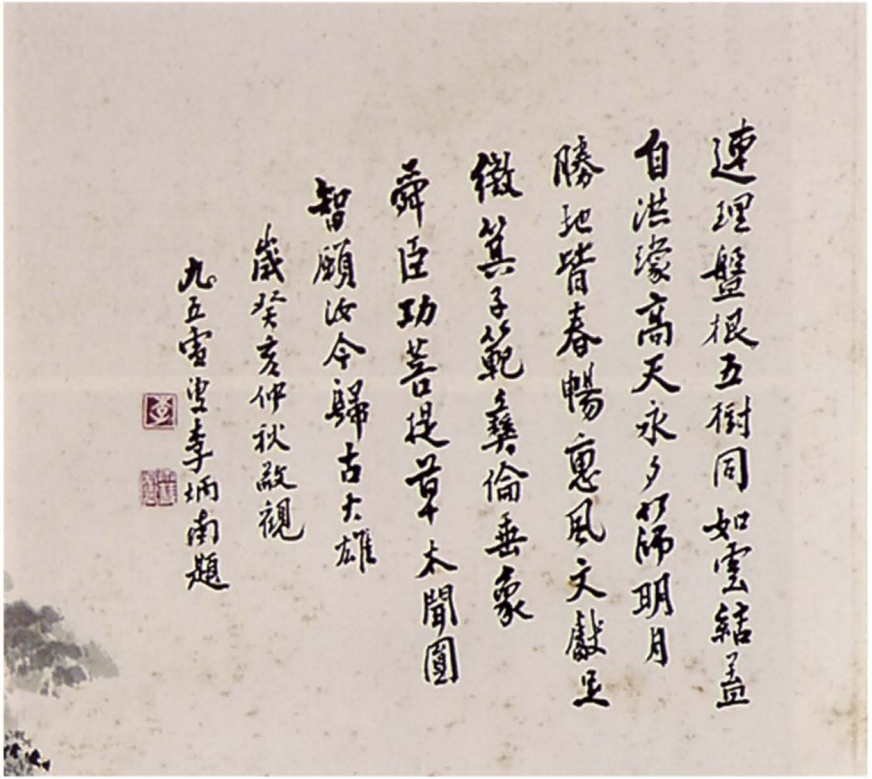 連理盤根五樹同如雲結蓋
自洪濛高天永夕篩明月
勝地皆春暢惠風文獻足
徵箕子範彝倫垂象
舜臣功菩提草木聞圓
智願汝今歸古大雄
歲癸亥仲秋敬觀
九五雪叟李炳南題